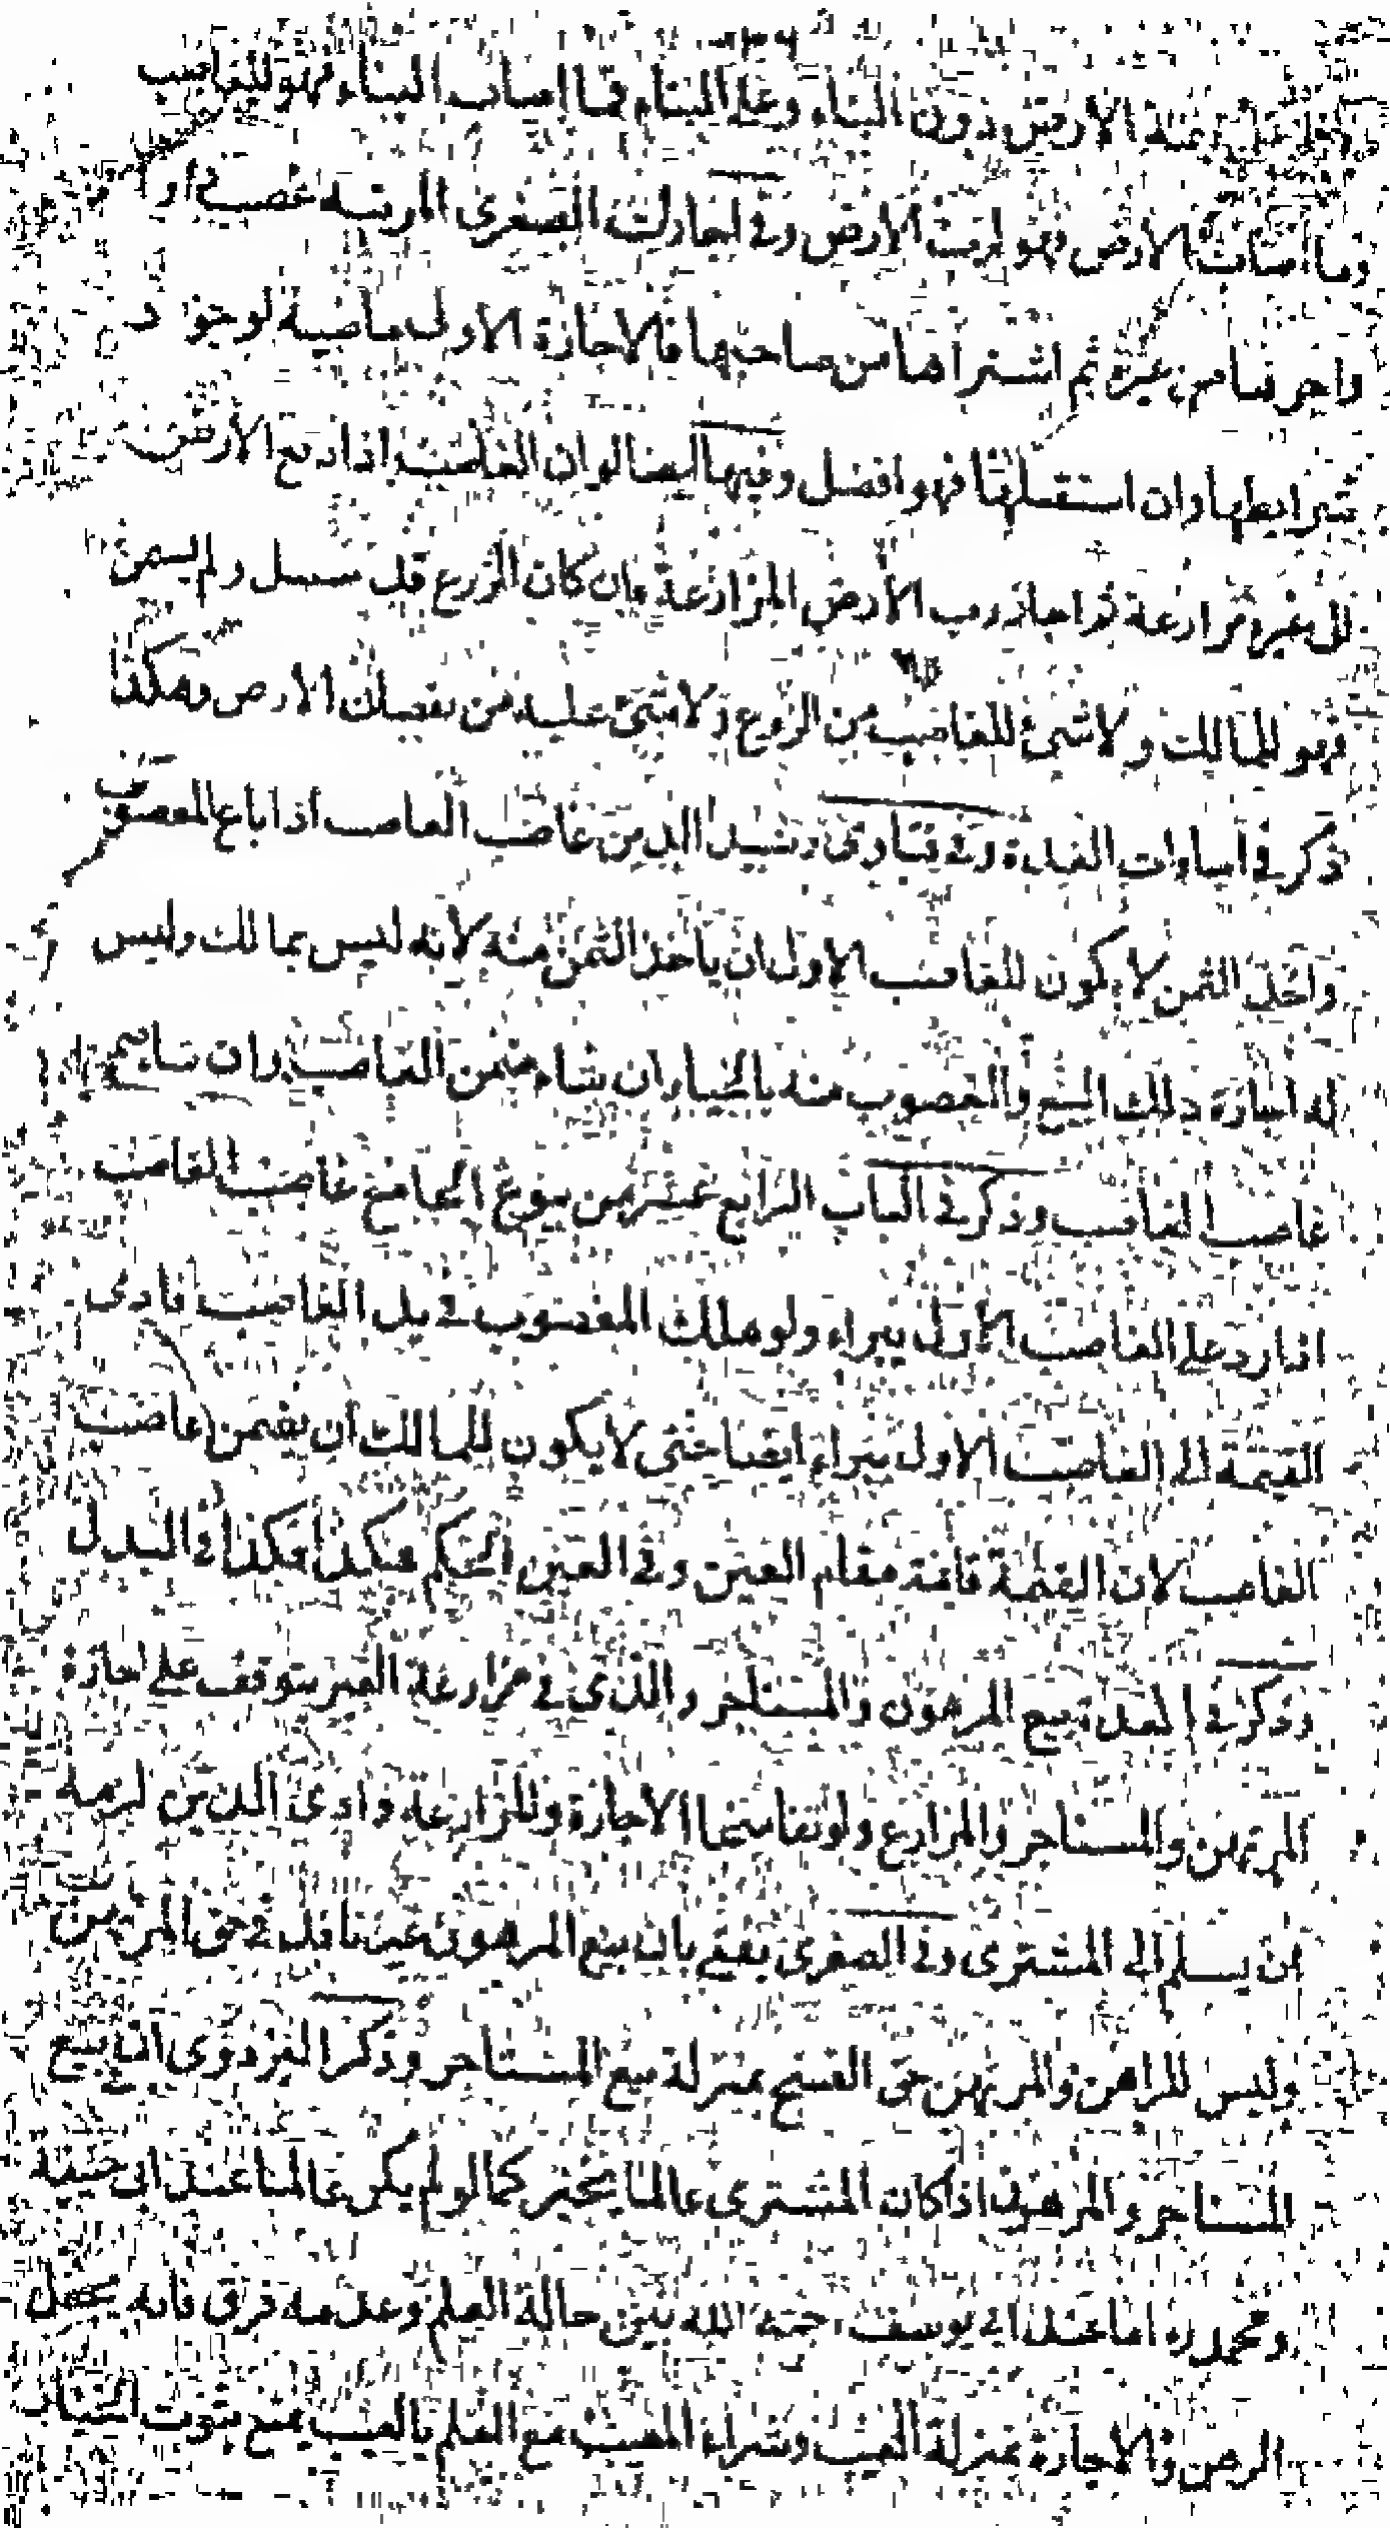 على قيمة الارض دون البناء وعلى البناء فما اصاب البناء فهو للغاصب
وما اصاب الارض فهو لرب الارض وفي اجارات الصغرى المرتبة غصب
واجرها من غيره ثم اشتراها من صاحبها فالاجازة الاولى ماضية لوجود
شرايطها وان استقبلها فهو افضل وفيها ايضا لو ان الغاصب اذا دفع الارض
الى غيره مزارعة ثم اجاز رب الارض المزارعة فان كان الزرع قد سنبل ولم يسمن
فهو للمالك ولا شئ للغاصب من الزرع ولا شئ عليه من الارض وهكذا
ذكر في الغلة وفي فتاوى رشيد الدين غاصب الغاصب اذا باع المغصوب
واخذ الثمن لا يكون للغاصب الاول ان ياخذ الثمن منه لانه ليس بمالك وليس
له اجازة ذلك البيع والمغصوب منه بالخيار ان شاء ضمن الغاصب وان شا ضمن
غاصب الغاصب وذكر في الباب الرابع عشر من بيوع الجامع غاصب الغاصب
اذا رد على الغاصب الاول يبراء ولو هلك المغصوب في يد الغاصب فادى
القيمة الى الغاصب الاول يبراء ايضا حتى لا يكون للمالك ان يضمن غاصب
الغاصب لان القيمة قائمة مقام العين وفي العين الحكم هكذا فكذا في البدل
وذكر في العدل بيع المرهون والمستاجر والذي في مزارعة الغير يتوقف على اجازة
المرتهن والمستاجر والمزارع ولو تفاسخا الاجازة والمزارعة وادى الدين لزمه
ان يسلم الى المشترى وفي الصغرى يفتى بان بيع المرهون غير نافذ في حق المرتهن
وليس للراهن والمرتهن حق الفسخ بمنزلة بيع المستاجر وذكر البزدوى ان بيع
المستاجر والمرهون اذا كان المشترى عالما يخير كما لو لم يكن عالما عند ابى حنيفة
ومحمد ره اما عند ابي يوسف رحمة الله بين حالة العلم وعدمه فرق فانه يجعل
الرهن والاجارة بمنزلة العيب وشراء المعيب مع العلم بالعيب يمنع ثبوت الخيار